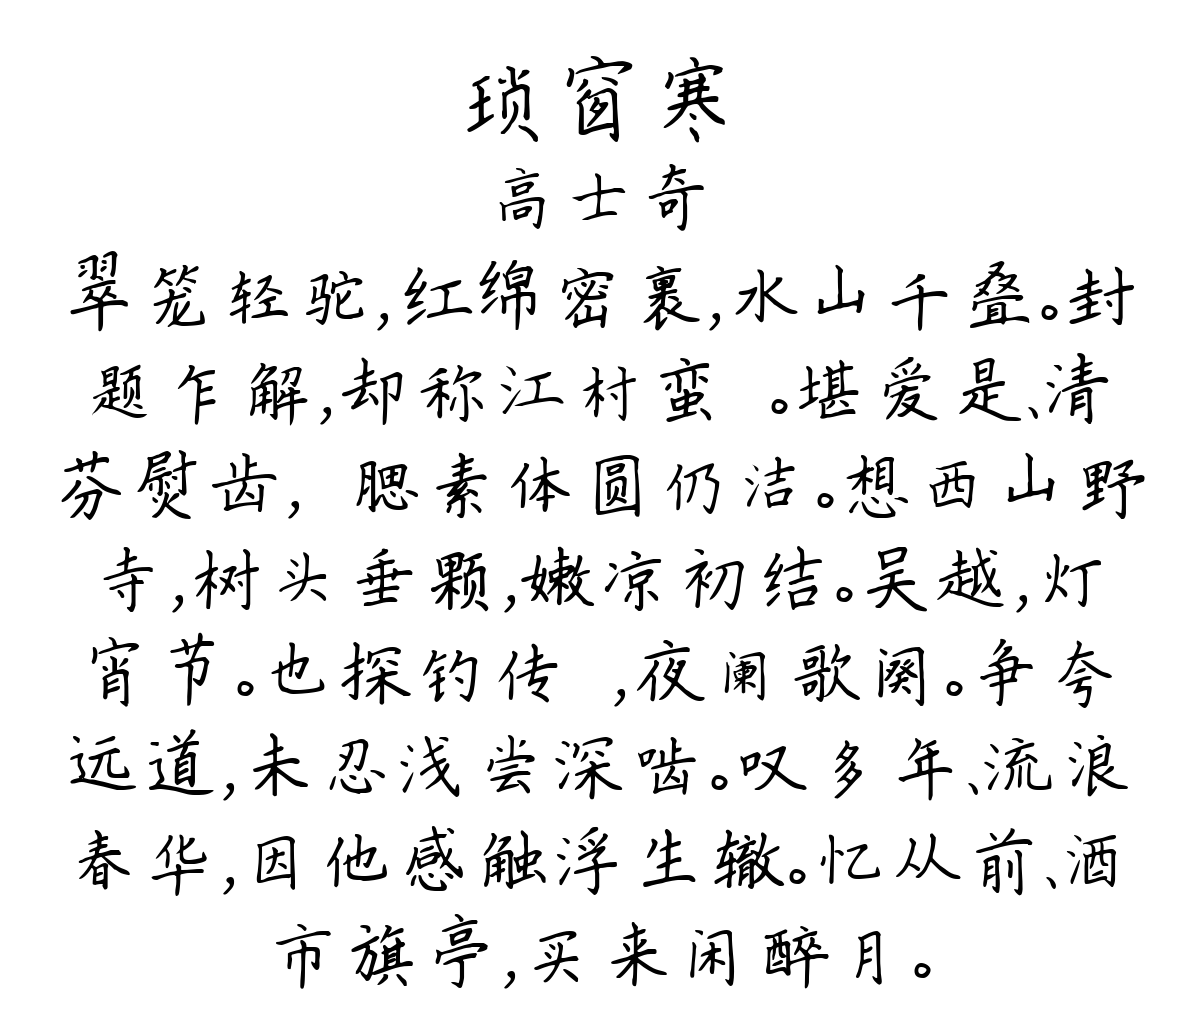 琐窗寒
高士奇
翠笼轻驼,红绵密裹,水山千叠。封
题乍解,却称江村蛮 。堪爱是、清
芬熨齿, 腮素体圆仍洁。想西山野
寺,树头垂颗,嫩凉初结。吴越,灯
宵节。也探钓传 ,夜阑歌阕。争夸
远道,未忍浅尝深啮。叹多年、流浪
春华,因他感触浮生辙。忆从前、酒
市旗亭,买来闲醉月。